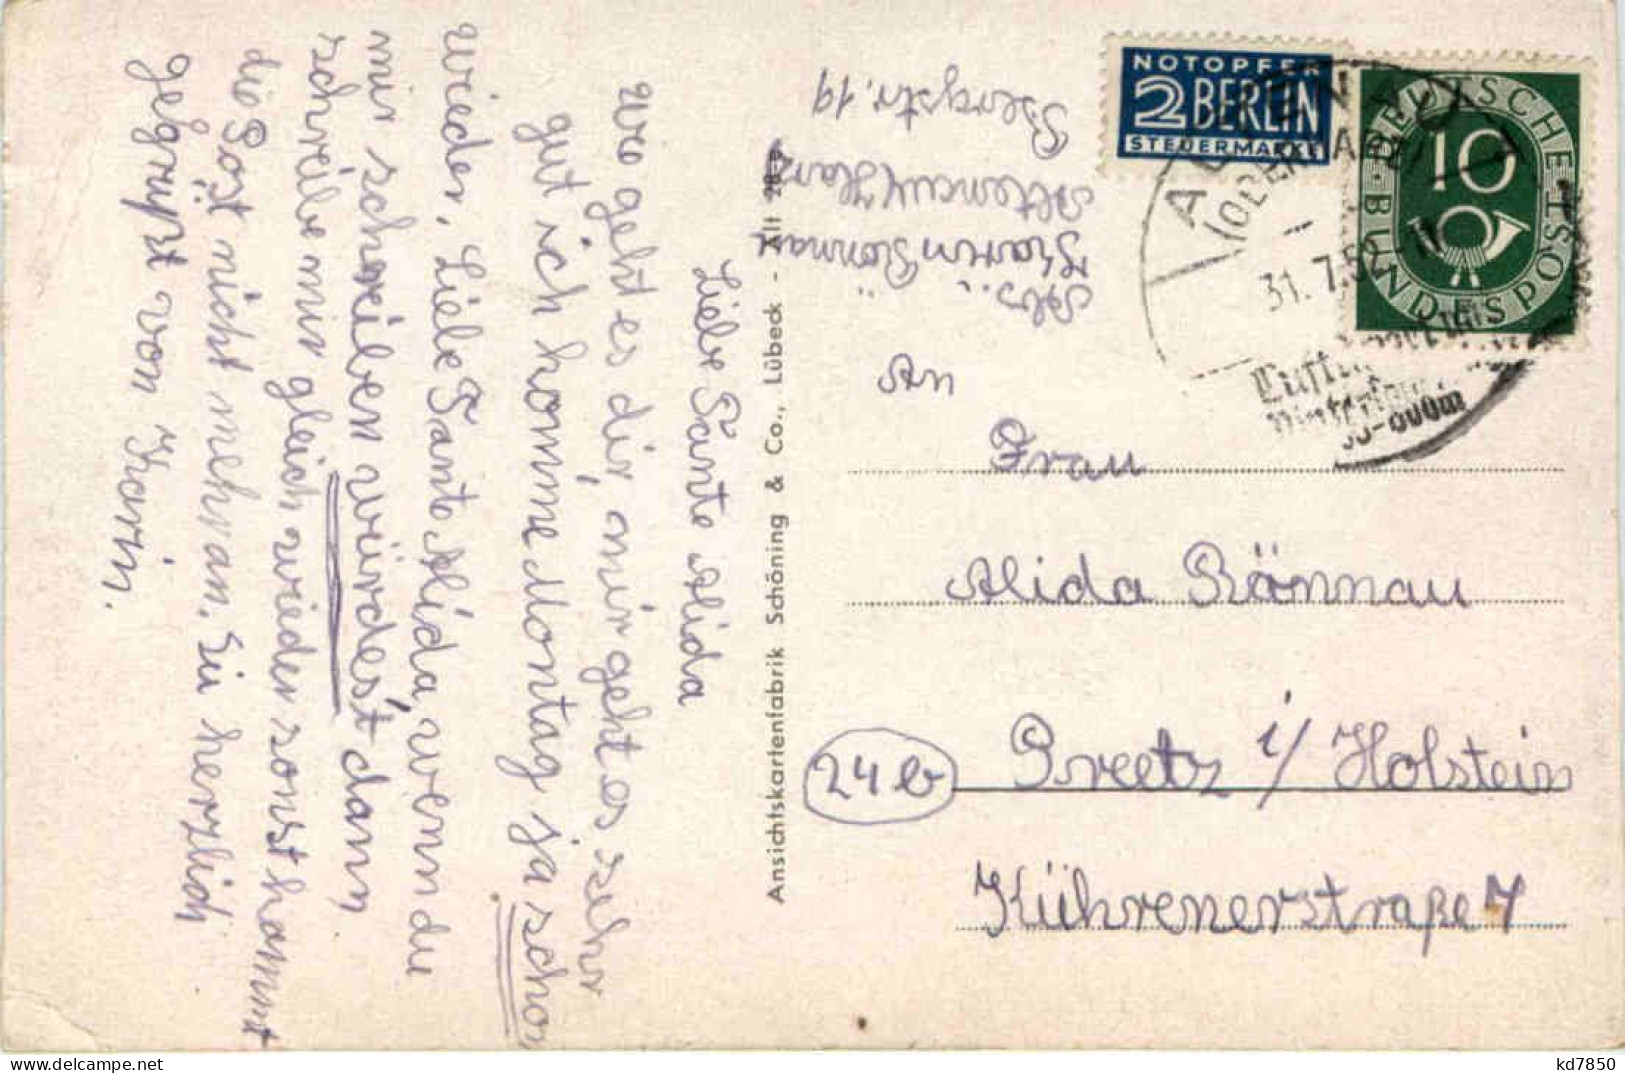 Liebe Tante Alida
Wie geht es dir, mir geht es sehr
gut ich komme Montag ja schon
wieder, Liebe Tante Alida, wenn du
mir schreiben würdest dann
schreibe mir gleich wieder sonst kommt
die Post nicht mehr an. Sei herzlich
Gegrüßt von Karin.
Ansichtskartenfabrik Schöning & Co., Lübeck - Alt
Abs.:
Karin Rönnau
Altenau/Harz
Bergstr. 19
NOTOPFER
2 BERLIN
STEUERMARKE
DEUTSCHE BUNDESPOST
10
(OBERHARZ)
31.7.52
-800m
An
Frau
Alida Rönnau
24b
Preetz i/Holstein
Kührenerstraße 7
kd7850